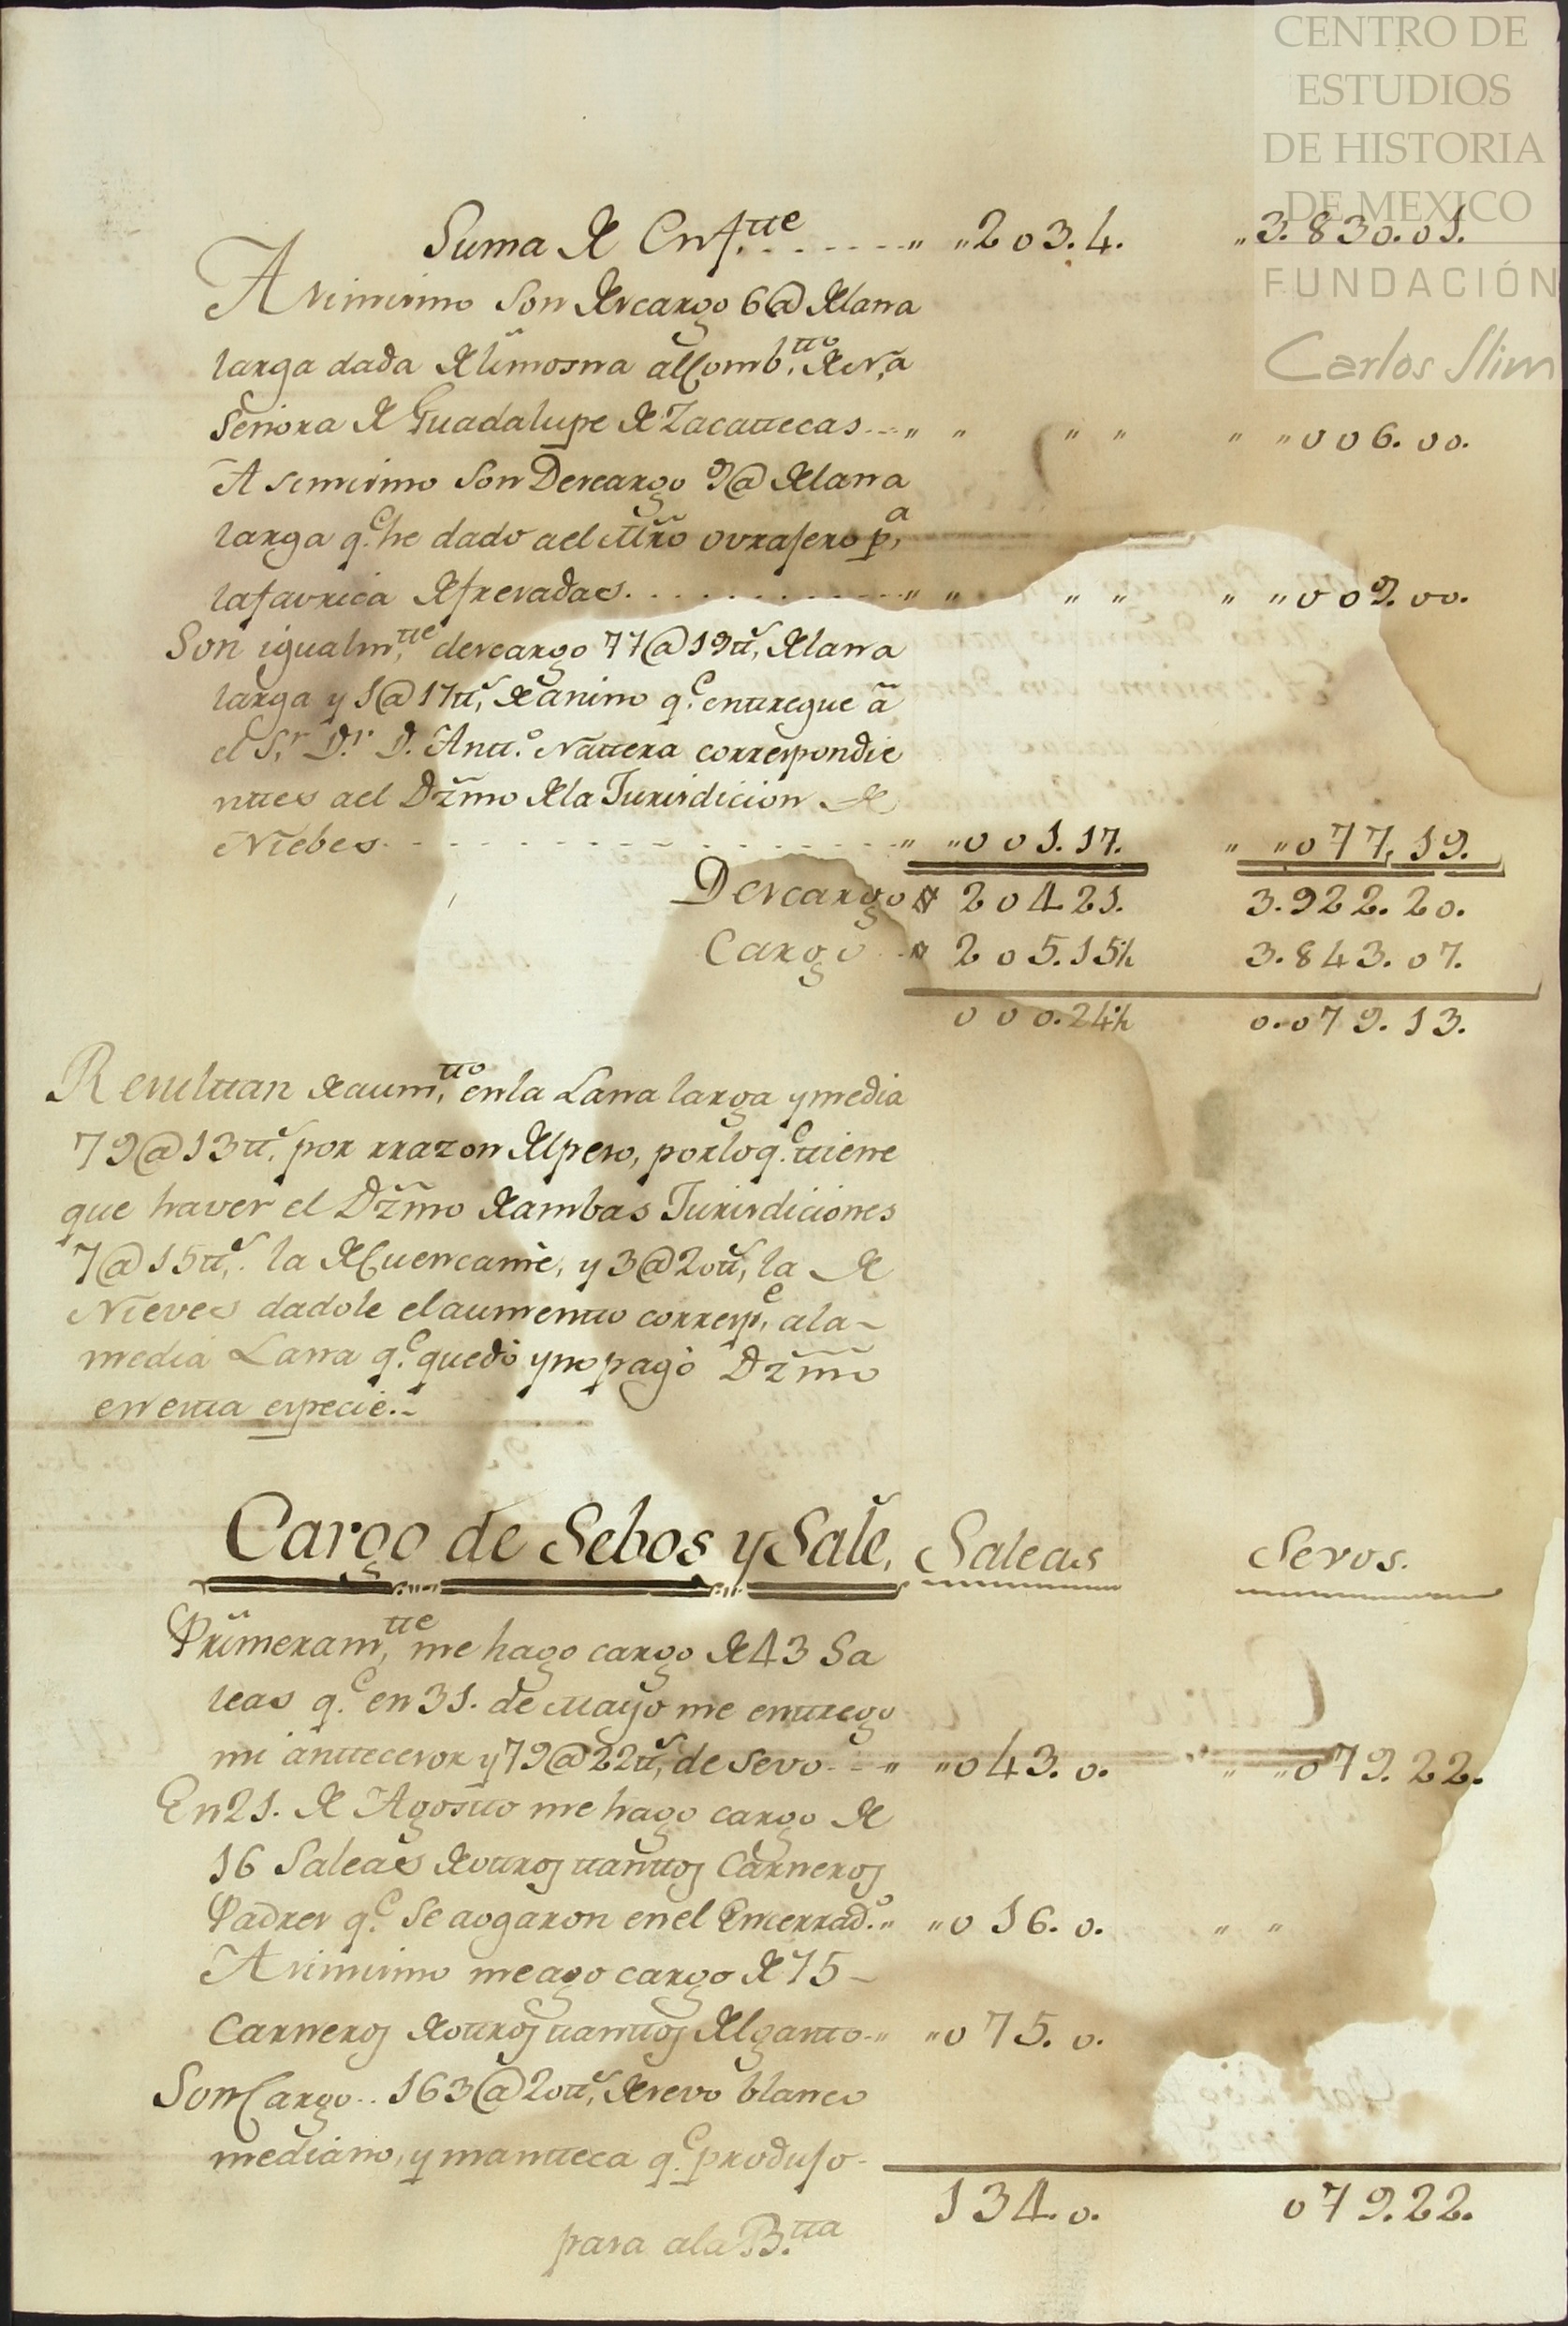 CENTRO DE
ESTUDIOS
DE HISTORIA
DE MEXICO
FUNDACIÓN
Carlos Slim
Suma de Enf.tte ........ " "203.4. "3.830.01.
Asimismo son descargo 6@ de lana
larga dada de limosna al Comb.tto de Nrã
Señora de Guadalupe de Zacattecas... " " " " " "006.00.
Asimismo son Descargo 9@ de lana
larga q.e he dado ael Mrõ ovrajero p.a
la favrica de fresadas............ " " " " " "009.00.
Son igualm.tte descargo 77@19tts, de lana
larga y 1@17tts, de anino q.e enttregue ã
el S.r D.r D. Antt.o Nattera correspondie
nttes ael Dzmõ de la Jurisdicion de
Niebes................ " "001.17. " "077,19.
Descargo 20421. 3.922.20.
Cargo .. 205.15½ 3.843.07.
000.24½ 0.079.13.
Resulttan de aum.tto en la Lana larga y media
79@13tts, por rrazon del peso, por lo q.e ttiene
que haver el Dzmõ de ambas Jurisdiciones
7@15tts,. la de Cuencamè, y 3@20tts, la de
Nieves dadole el aumentto corresp.e a la-
media Lana q.e quedò y no pagò Dzmõ
en estta especie.-
Cargo de Sebos y Salẽ, Saleas Sevos.
Primeram.tte me hago cargo de 43 Sa
leas q.e en 31. de Mayo me enttrego
mi antteceror y 79@22tts, de sevo... " "043.0. " "079.22.
En 21. de Agostto me hago cargo de
16 Saleas de ottros ttanttos Carneros
Padres q.e se aogaron en el Encerrad.o " "016.0. " "
Asimismo me ago cargo de 75-
Carneros de ottros ttanttos del gastto.. " "075.0.
Son Cargo.. 163@20tts, de sevo blanco
mediano, y mantteca q.e produjo-
134.0. 079.22.
pasa a la B.tta